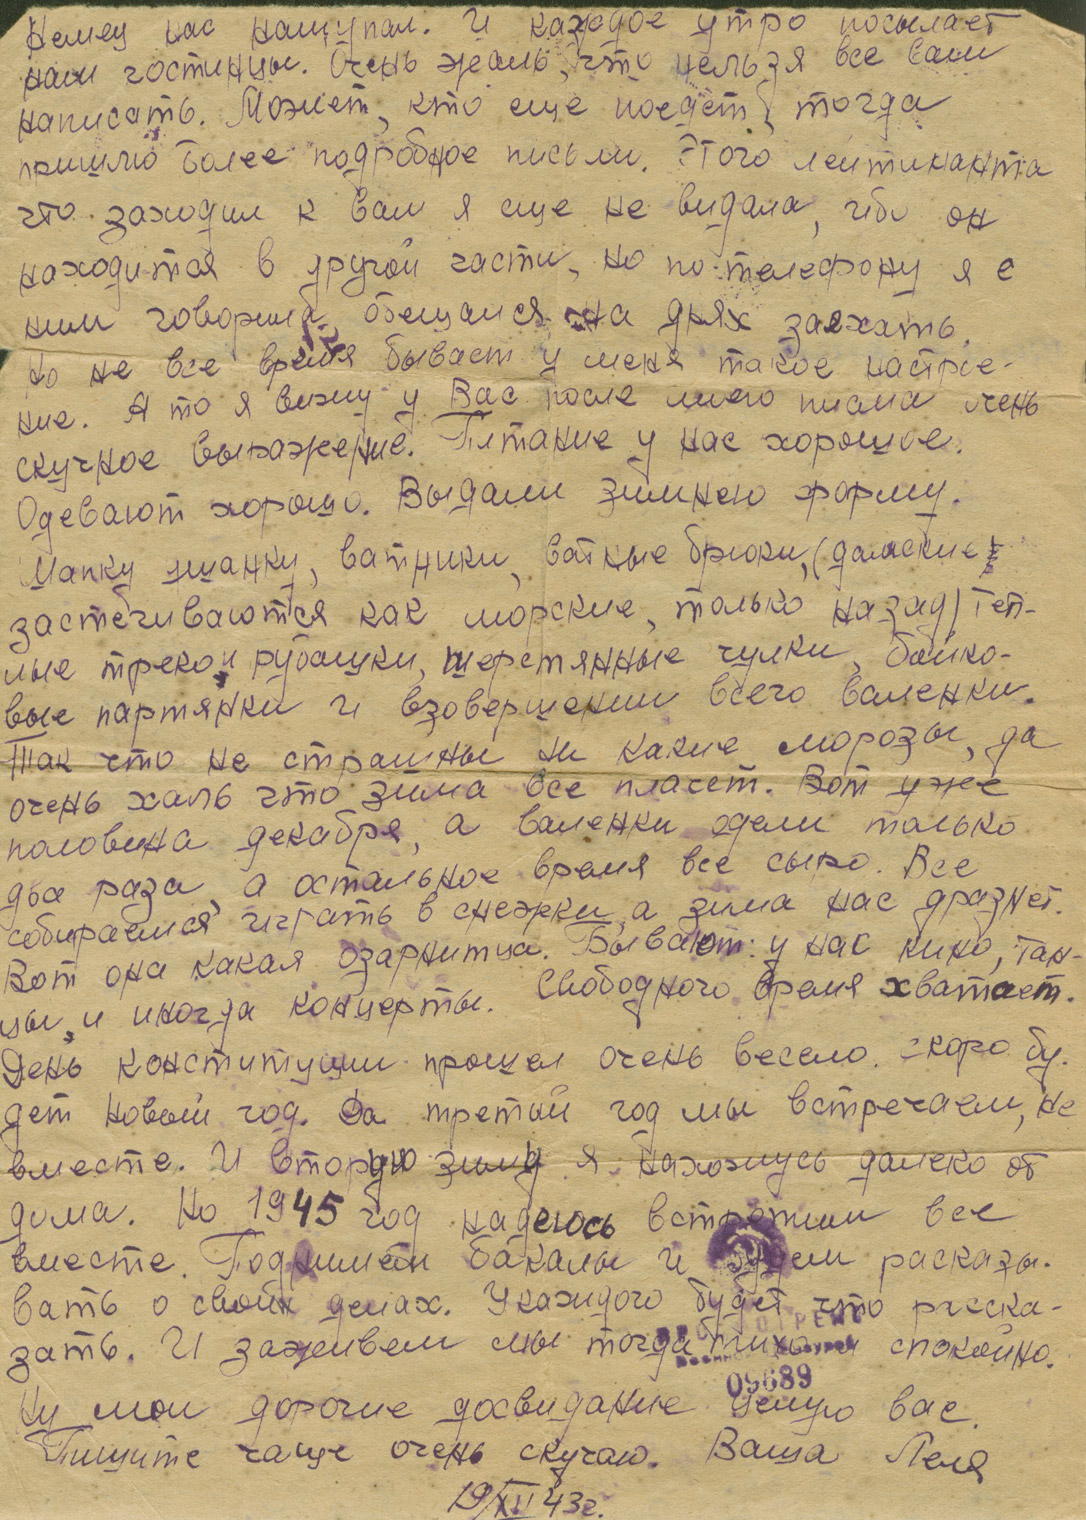 Немец нас нащупал. И каждое утро посылает
нам гостинцы. Очень жаль, что нельзя все вам
написать. Может, кто еще поедет, тогда
пришлю более подробное письмо. Того лейтинанта
что заходил к вам я еще не видала, ибо он
находится в другой части, но по телефону я с
ним говорила, обещался на днях заяхать.
Но не все время бывает у меня такое настрое-
ние. А то я вижу у Вас после моего писма очень
скучное выражение. Питание у нас хорошое.
Одевают хорошо. Выдали зимнею форму.
Шапку ушанку, ватники, ватные брюки, (дамские
застёгиваются как морские, только назад) Теп-
лые треко, и рубашки, шерстянные чулки, байко-
вые партянки и взовершении всего валенки.
Так что не страшны ни какие морозы, да
очень халь что зима все плачет. Вот уже
половина декабря, а валенки одели только
два раза, а остальное время все сыро. Все
собираемся играть в снежки, а зима нас дразнет.
Вот она какая озарнитца. Бывают у нас кино, тан-
цы, и иногда концерты. Свободного время хватает.
День конституции прошел очень весело. скоро бу-
дет новый год. Да третий год мы встречаем, не
вместе. И вторую зиму я нахожусь далеко от
дома. Но 1945 год надеюсь встретим все
вместе. Поднимем бакалы и будем расказы-
вать о своих делах. У каждого будет что расска-
зать. И заживем мы тогда тихо и спокойно.
09689
Ну мои дорогие досвидание целую вас.
Пишите чаще очень скучаю. Ваша Леля
19/XII 43г.